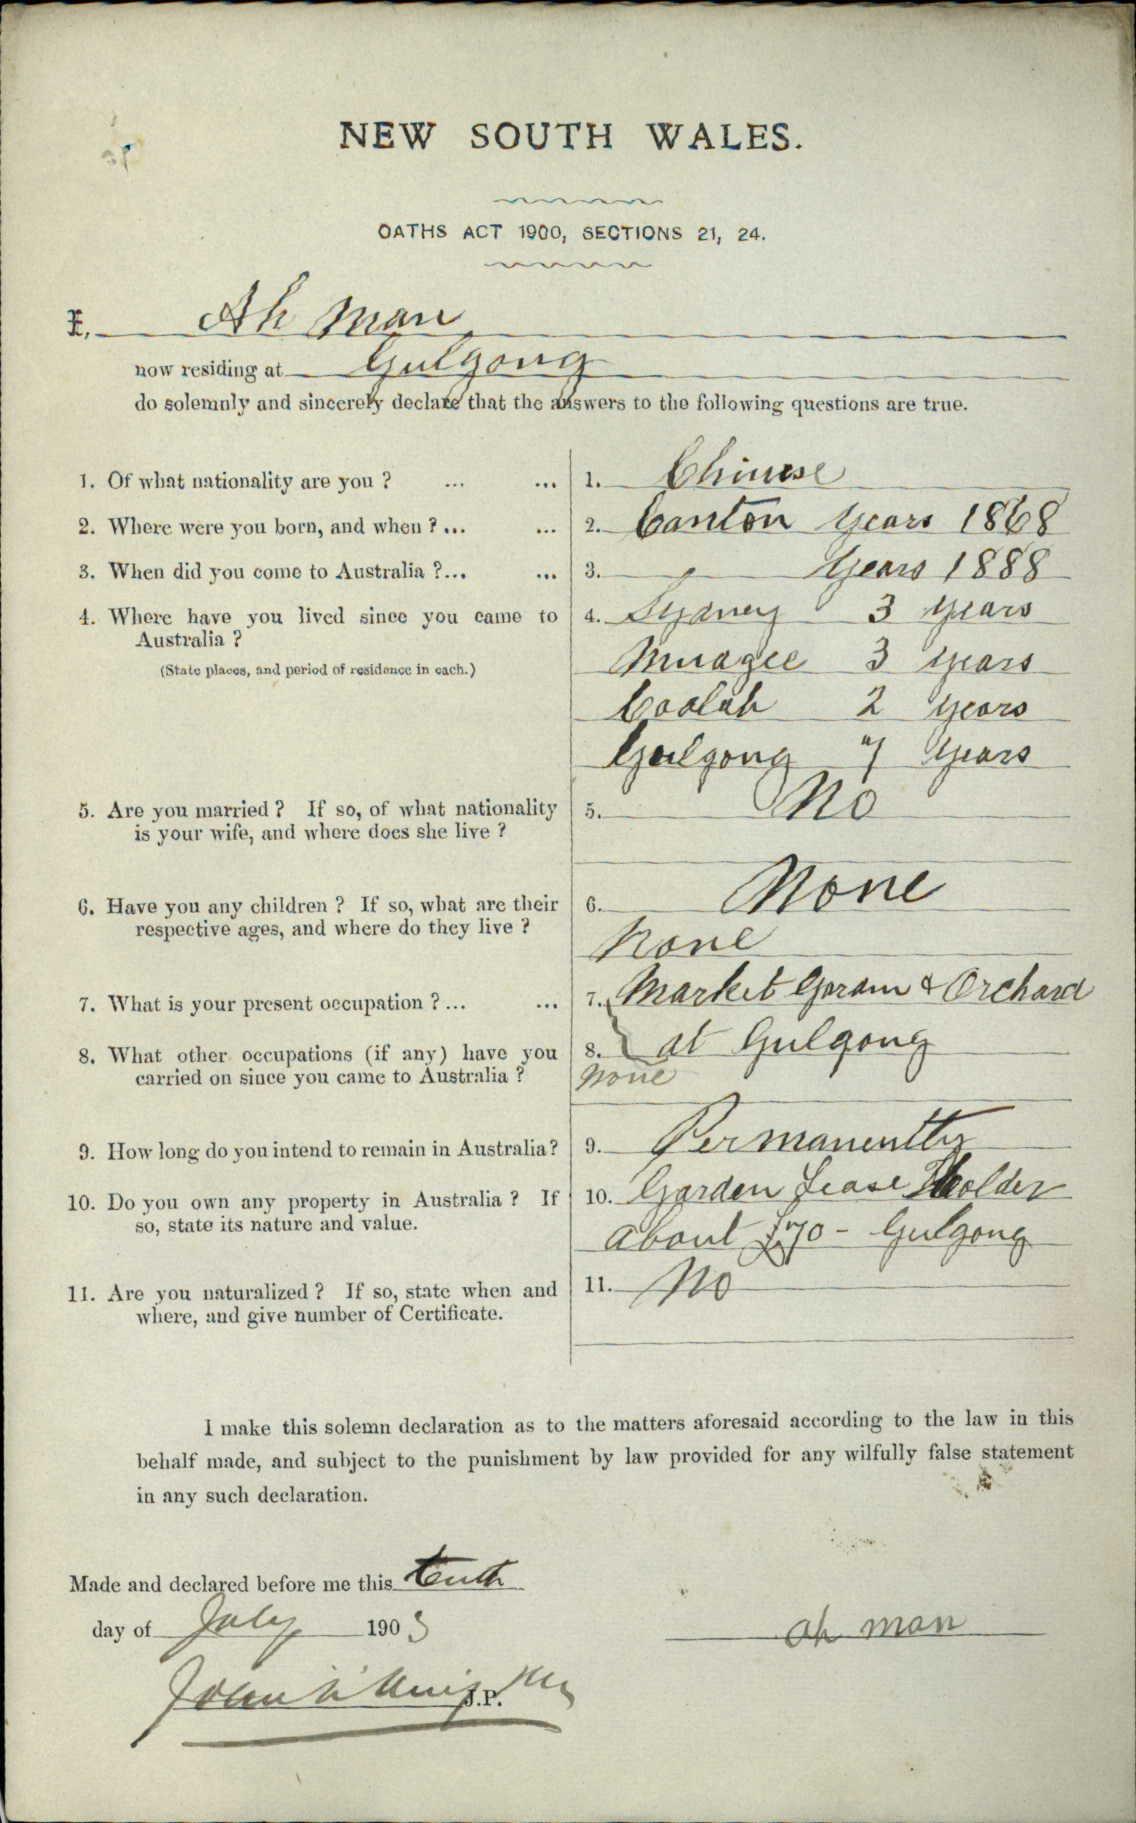 NEW SOUTH WALES.
OATHS ACT 1900, SECTIONS 21, 24.
I, Ah Man
now residing at Gulgong
do solemnly and sincerely declare that the answers to the following questions are true.
1. Of what nationality are you ? ... ... 1. Chinese
2. Where were you born, and when ? ... ... 2. Canton Years 1868
3. When did you come to Australia ? ... ... 3. Years 1888
4. Where have you lived since you came to 4. Sydney 3 Years
Australia ?
(State places, and period of residence in each.) Mudgee 3 Years
Coolah 2 Years
Gulgong 7 Years
5. Are you married ? If so, of what nationality 5. No
is your wife, and where does she live ?
6. Have you any children ? If so, what are their 6. None
respective ages, and where do they live ? None
7. What is your present occupation ? ... ... 7. Market Garden & Orchard
8. What other occupations (if any) have you 8. at Gulgong
carried on since you came to Australia ? None
9. How long do you intend to remain in Australia? 9. Permanently
10. Do you own any property in Australia ? If 10. Garden Lease Holder
so, state its nature and value. About £70 - Gulgong
11. Are you naturalized ? If so, state when and 11. No
where, and give number of Certificate.
I make this solemn declaration as to the matters aforesaid according to the law in this
behalf made, and subject to the punishment by law provided for any wilfully false statement
in any such declaration.
Made and declared before me this tenth
day of July 1903 ah man
John J.P.